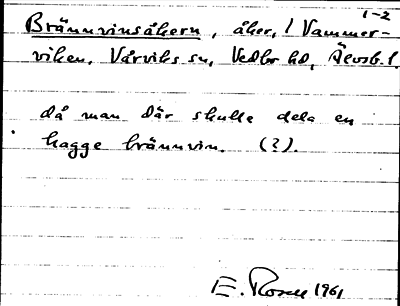 1-2
Brännvinsåkern, åker, / Vammer-
viken, Vårviks sn, Vedbo hd, Älvsb. l.
då man där skulle dela en
kagge brännvin. (?).
E. Rosell 1961